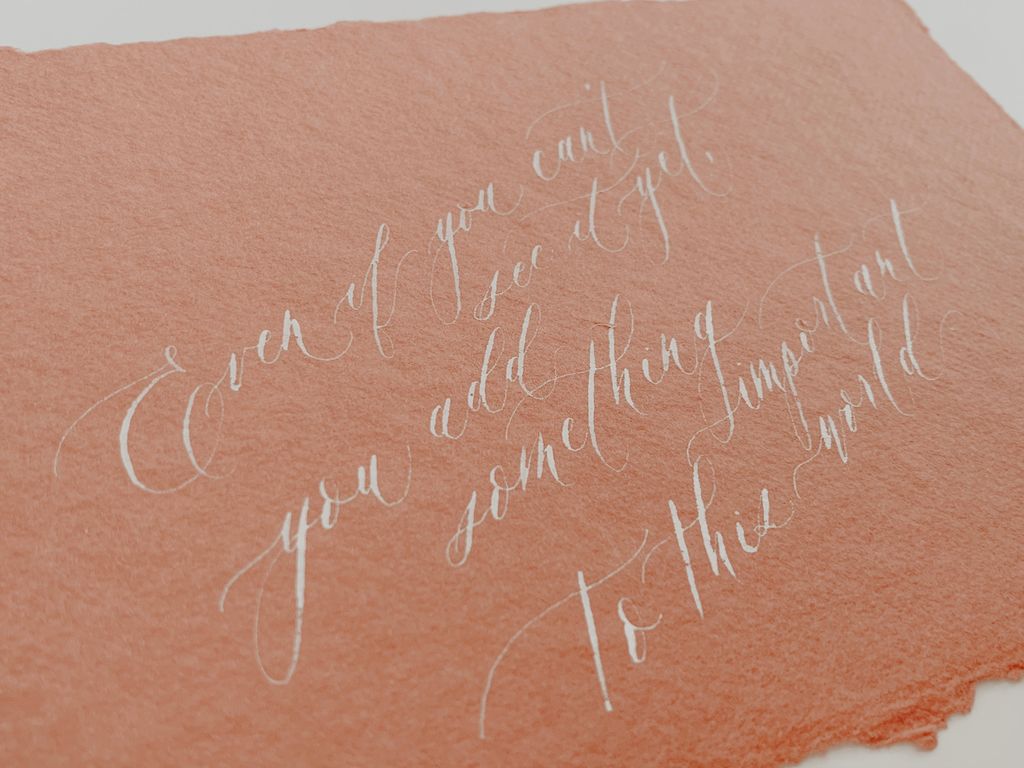 Even if you can't
see it yet,
you add
something important
to this world